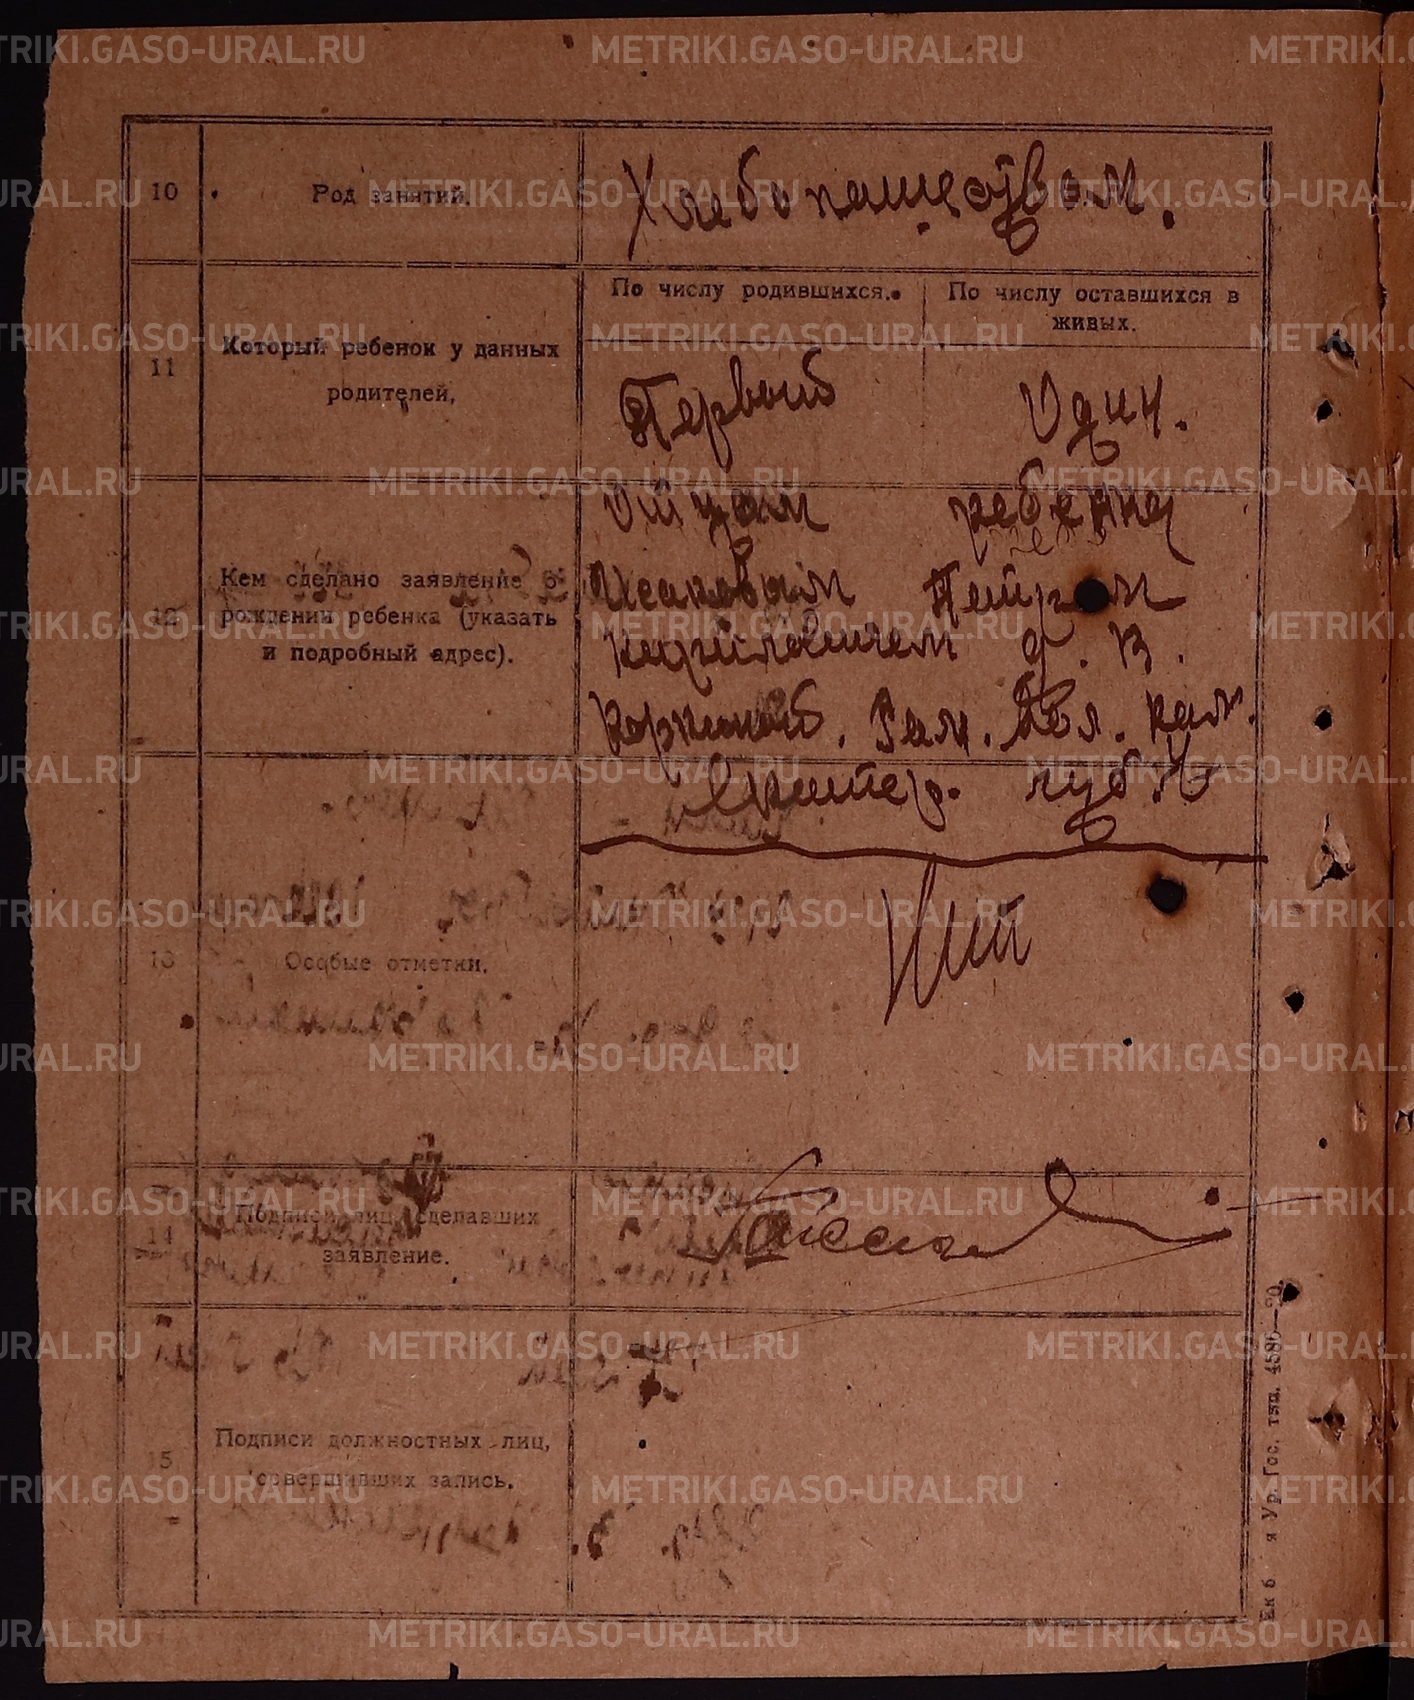 10
Род занятий.
Хлебопашеством.
11
Который ребенок у данных
родителей,
По числу родившихся.
По числу оставшихся в
живых.
Первый
Один.
12
Кем сделано заявление о
рождении ребенка (указать
и подробный адрес).
Отцом ребенка
Исаковым Петром
Кириловичем д. В.
Кам.
Екатер. губ.
13
Особые отметки.
Нит
14
Подписи лиц, сделавших
заявление.
15
Подписи должностных лиц,
совершивших запись.
я Ур. Гос. тип. 4586—20.
METRIKI.GASO-URAL.RU